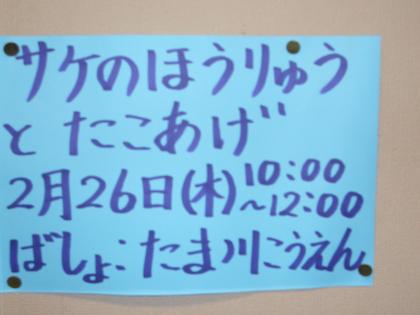 サケのほうりゅう
と たこあげ
2月26日(木)10:00
~12:00
ばしょ:たま川こうえん